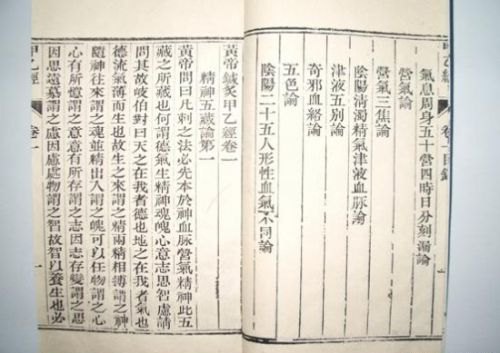 甲乙經 卷一目錄
氣息周身五十營四時日分刻漏論
營氣論
營氣三焦論
陰陽清濁精氣津液血脈論
津液五別論
奇邪血絡論
五色論
陰陽二十五人形性血氣不同論
黃帝鍼灸甲乙經卷一
精神五藏論第一
黃帝問曰凡刺之法必先本於神血脈營氣精神此五
藏之所藏也何謂德氣生精神魂魄心意志思智慮請
問其故岐伯對曰天之在我者德也地之在我者氣也
德流氣薄而生也故生之來謂之精兩精相搏謂之神
隨神往來謂之魂並精出入謂之魄可以任物謂之心
心有所憶謂之意意有所存謂之志因志存變謂之思
因思遠慕謂之慮因慮處物謂之智故智以養生也必
甲乙經 卷一 一